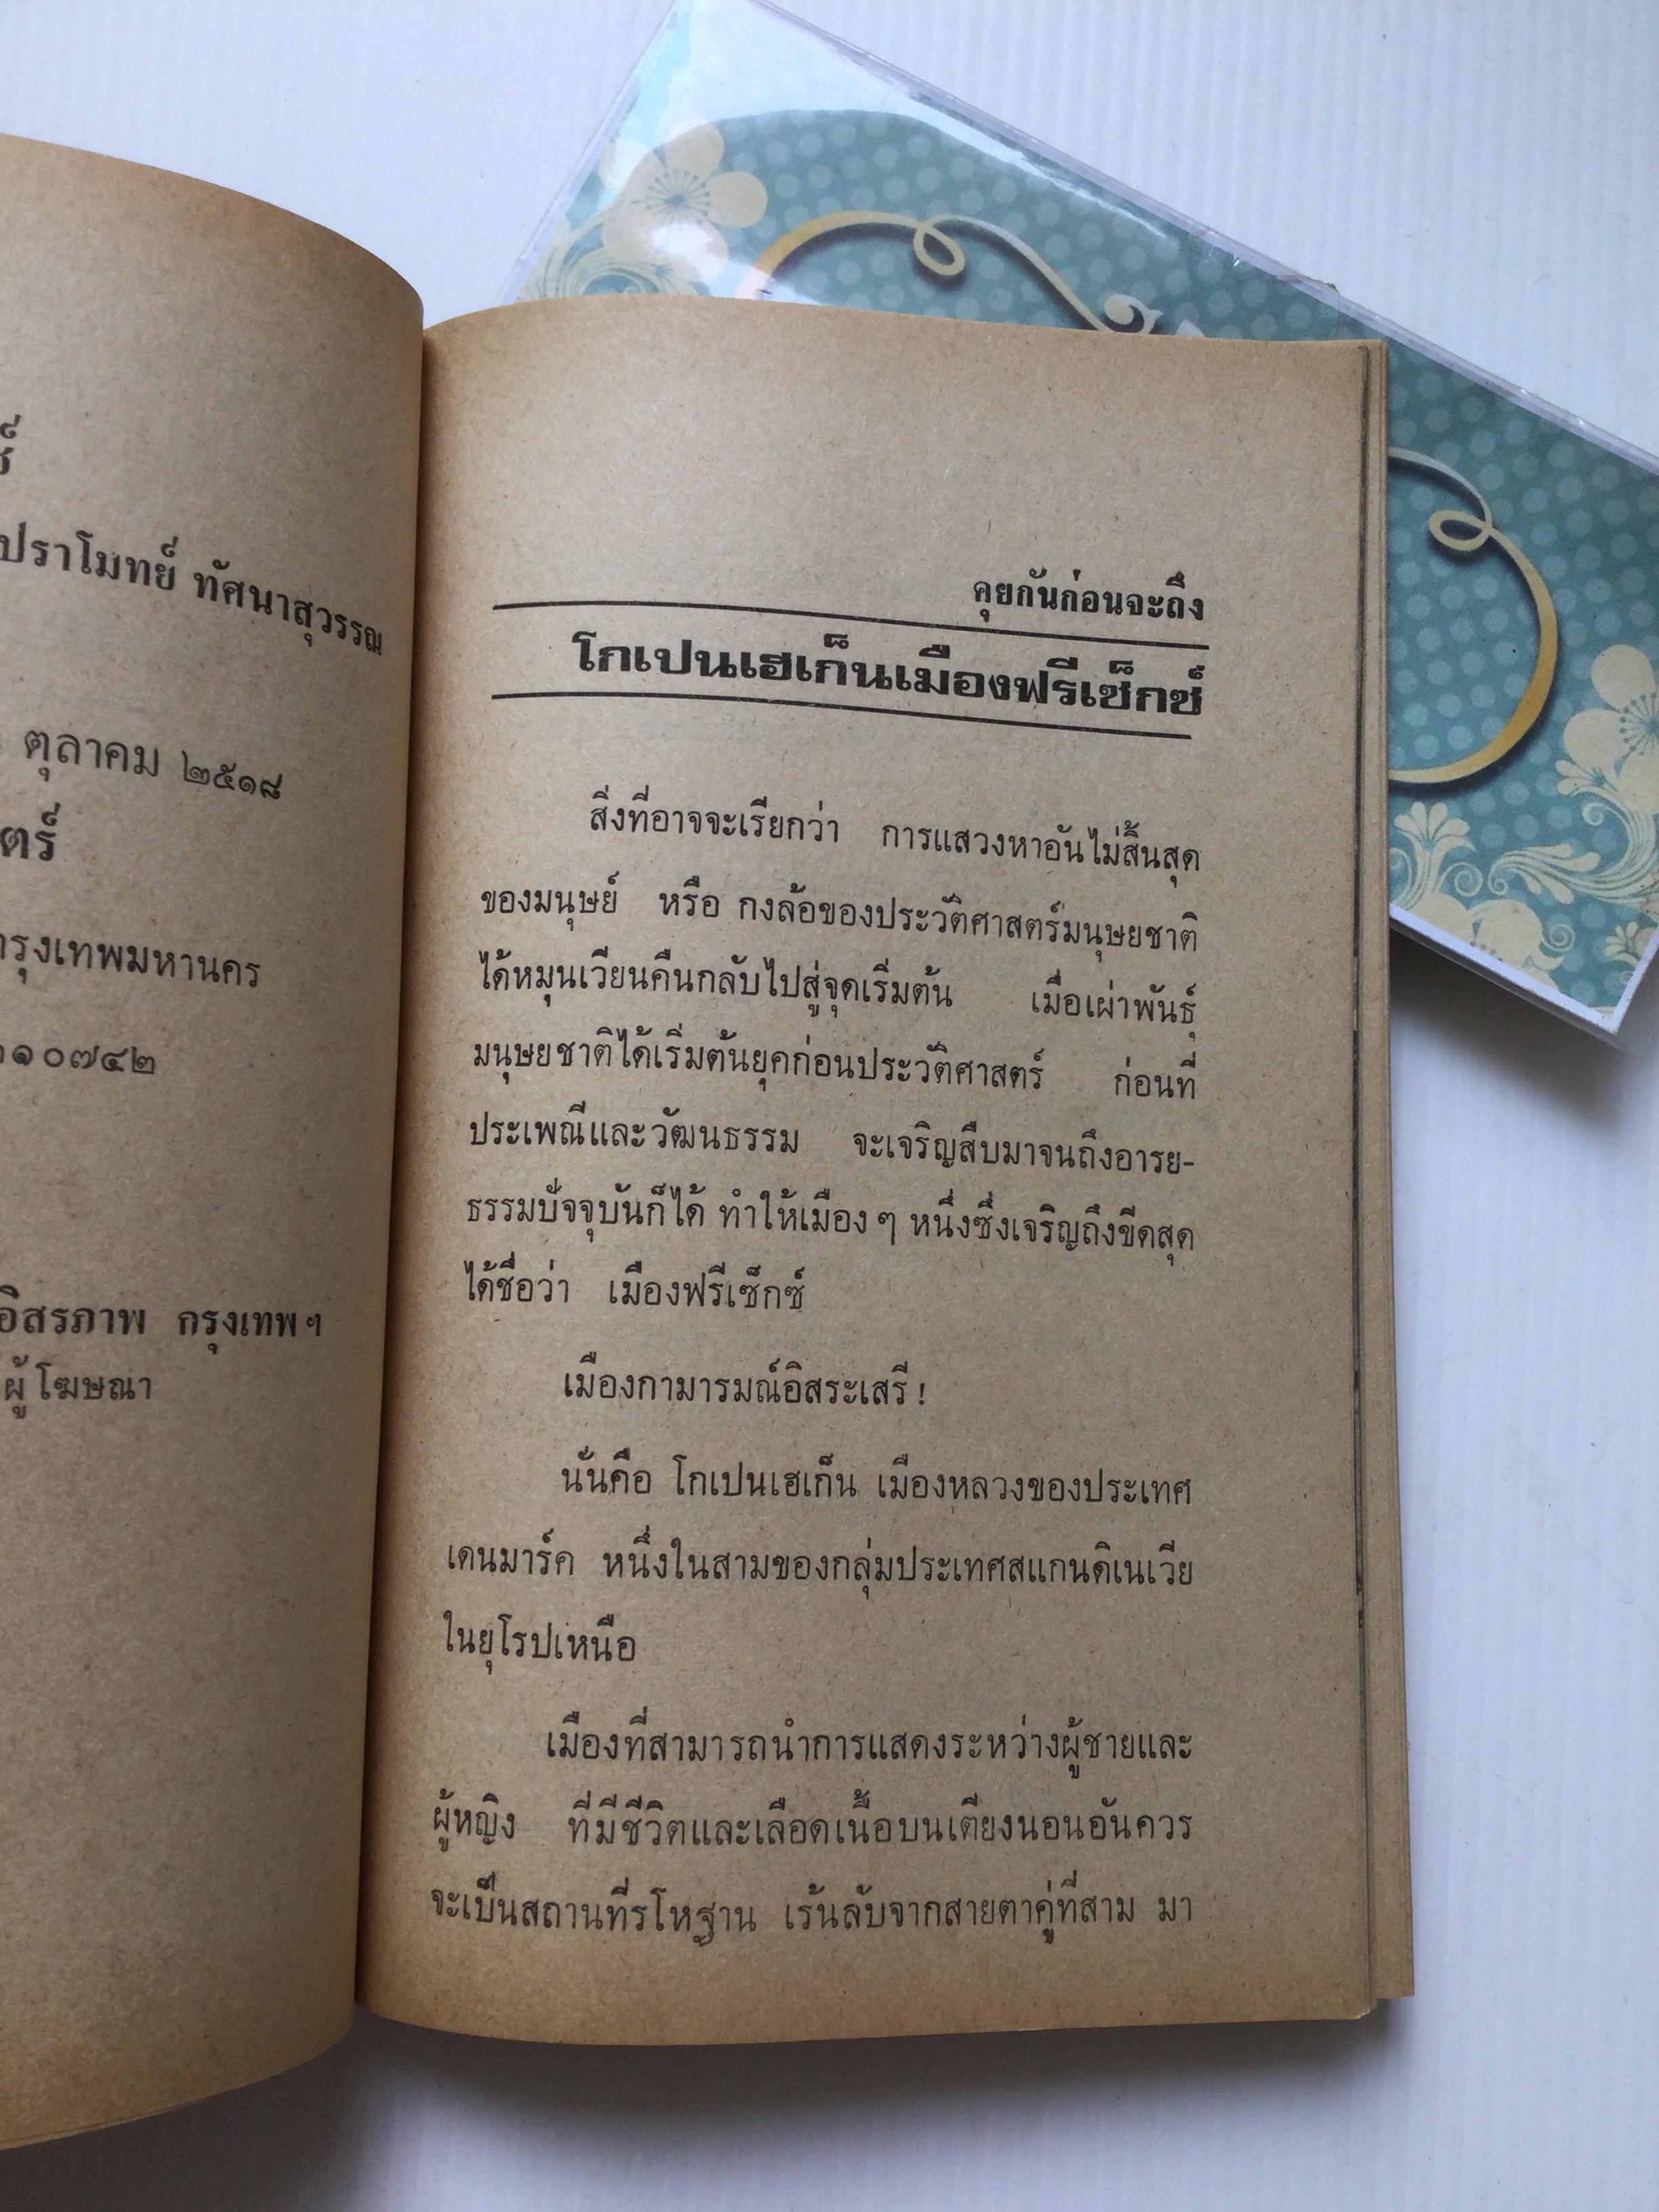 ปราโมทย์ ทัศนาสุวรรณ
ตุลาคม ๒๕๑๘
กรุงเทพมหานคร
๑๐๗๔๒
อิสรภาพ กรุงเทพฯ
ผู้โฆษณา
คุยกันก่อนจะถึง
โกเปนเฮเก็นเมืองฟรีเซ็กซ์
สิ่งที่อาจจะเรียกว่า การแสวงหาอันไม่สิ้นสุด
ของมนุษย์ หรือ กงล้อของประวัติศาสตร์มนุษยชาติ
ได้หมุนเวียนคืนกลับไปสู่จุดเริ่มต้น เมื่อเผ่าพันธุ์
มนุษยชาติได้เริ่มต้นยุคก่อนประวัติศาสตร์ ก่อนที่
ประเพณีและวัฒนธรรม จะเจริญสืบมาจนถึงอารย-
ธรรมปัจจุบันก็ได้ ทำให้เมืองๆ หนึ่งซึ่งเจริญถึงขีดสุด
ได้ชื่อว่า เมืองฟรีเซ็กซ์
เมืองกามารมณ์อิสระเสรี!
นั่นคือ โกเปนเฮเก็น เมืองหลวงของประเทศ
เดนมาร์ค หนึ่งในสามของกลุ่มประเทศสแกนดิเนเวีย
ในยุโรปเหนือ
เมืองที่สามารถนำการแสดงระหว่างผู้ชายและ
ผู้หญิง ที่มีชีวิตและเลือดเนื้อบนเตียงนอนอันควร
จะเป็นสถานที่รโหฐาน เร้นลับจากสายตาคู่ที่สาม มา